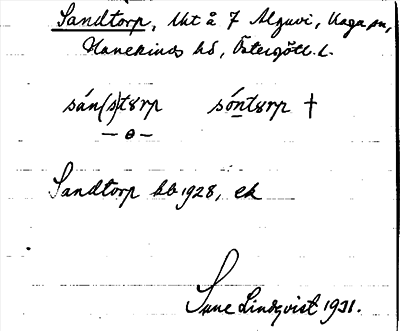 Sandtorp, Utt å 7 Algutvi, Kaga sn,
Hanekinds hd, Östergötl. L.
sán(s)tɤrp sóntɤrp †
– ɵ –
Sandtorp kb 1928, ek
Sune Lindqvist 1931.